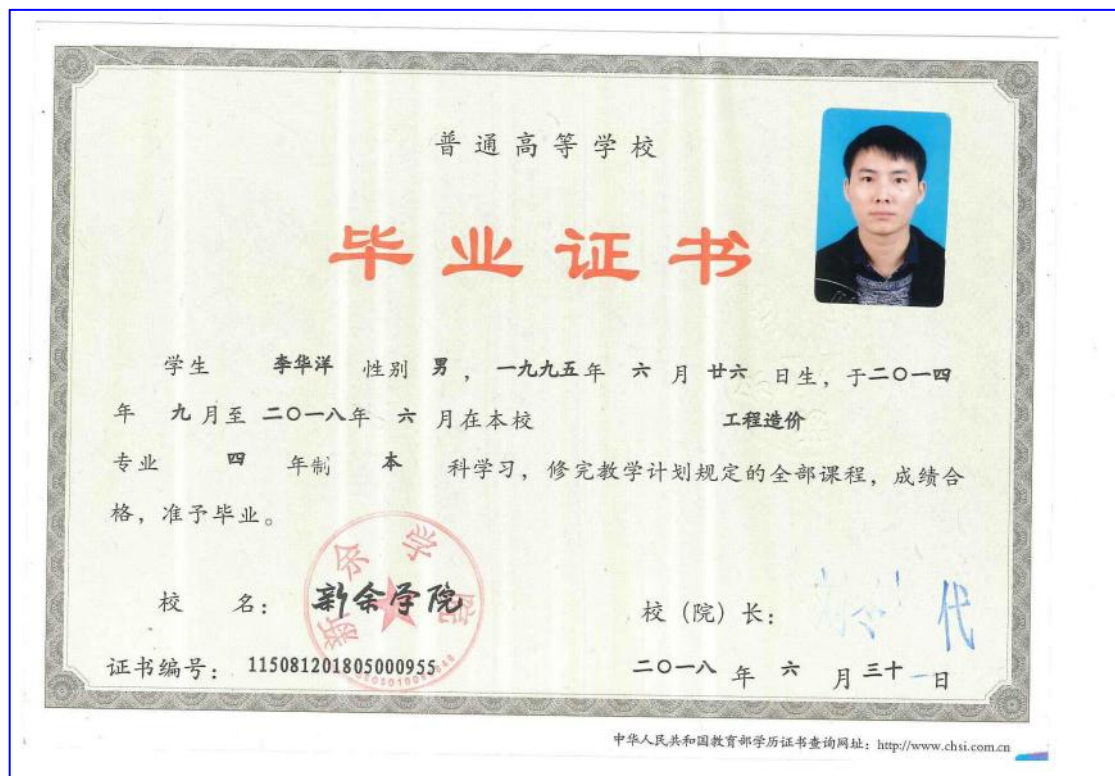 普通高等学校
毕业证书
学生 李华洋 性别 男，一九九五年 六 月 廿六 日生，于二〇一四
年 九月至 二〇一八年 六 月在本校 工程造价
专业 四 年制 本 科学习，修完教学计划规定的全部课程，成绩合
格，准予毕业。
新余学院
校 名：新余学院 校（院）长：
证书编号：115081201805000955 二〇一八 年 六 月 三十 日
中华人民共和国教育部学历证书查询网址：http://www.chsi.com.cn